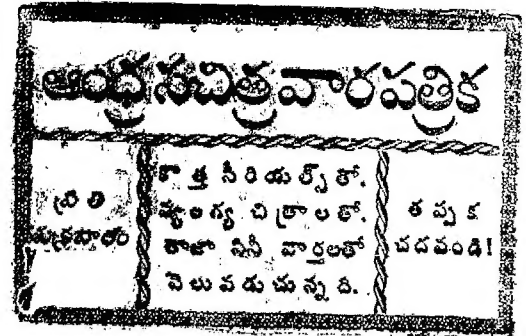 ఆంధ్రసచిత్రవారపత్రిక
ప్రతి
శుక్రవారం
కొత్త సీరియల్స్ తో.
వ్యంగ్య చిత్రాలతో.
తాజా సినీ వార్తలతో
వెలువడుచున్నది.
తప్పక
చదవండి!